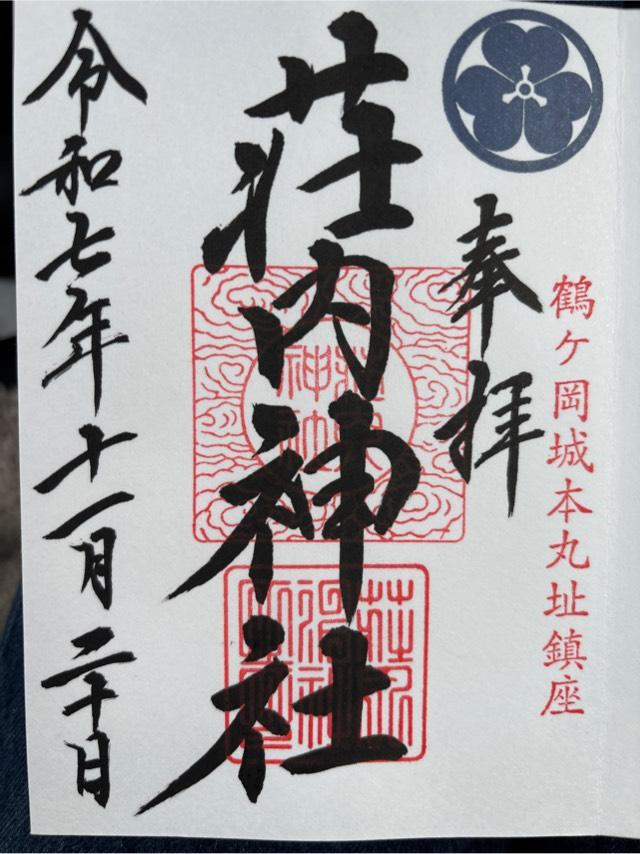 鶴ケ岡城本丸址鎮座
奉拝
荘内神社
令和七年十一月二十日